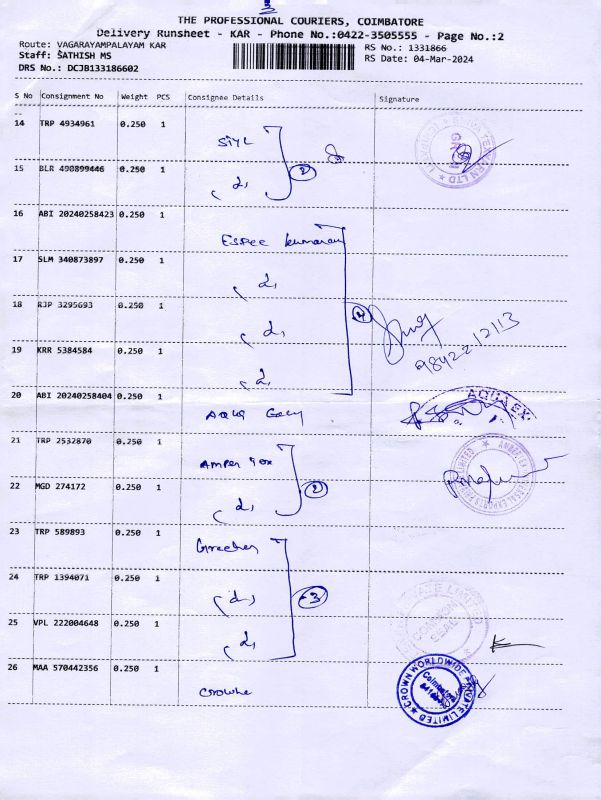 3
THE PROFESSIONAL COURIERS, COIMBATORE
Delivery Runsheet - KAR - Phone No.:0422-3505555 - Page No.:2
Route: VAGARAYAMPALAYAM KAR
RS No.: 1331866
Staff: SATHISH MS
RS Date: 04-Mar-2024
DRS No.: DCJB133186602
S No Consignment No Weight PCS Consignee Details Signature
14 TRP 4934961 0.250 1
15 BLR 490899446 0.250 1
2
16 ABI 20240258423 0.250 1 Espee kumaran
17 SLM 340873897 0.250 1
18 RJP 3295693 0.250 1
4
19 KRR 5384584 0.250 1
98422 12113
20 ABI 20240258404 0.250 1 AQUA
AQUA EX
21 TRP 2532870 0.250 1 Amper
22 MGD 274172 0.250 1
2
23 TRP 589893 0.250 1
24 TRP 1394071 0.250 1
3
25 VPL 222004648 0.250 1
COMMON SEAL
26 MAA 570442356 0.250 1
CROWN WORLDWIDE PRIVATE LIMITED
Coimbatore